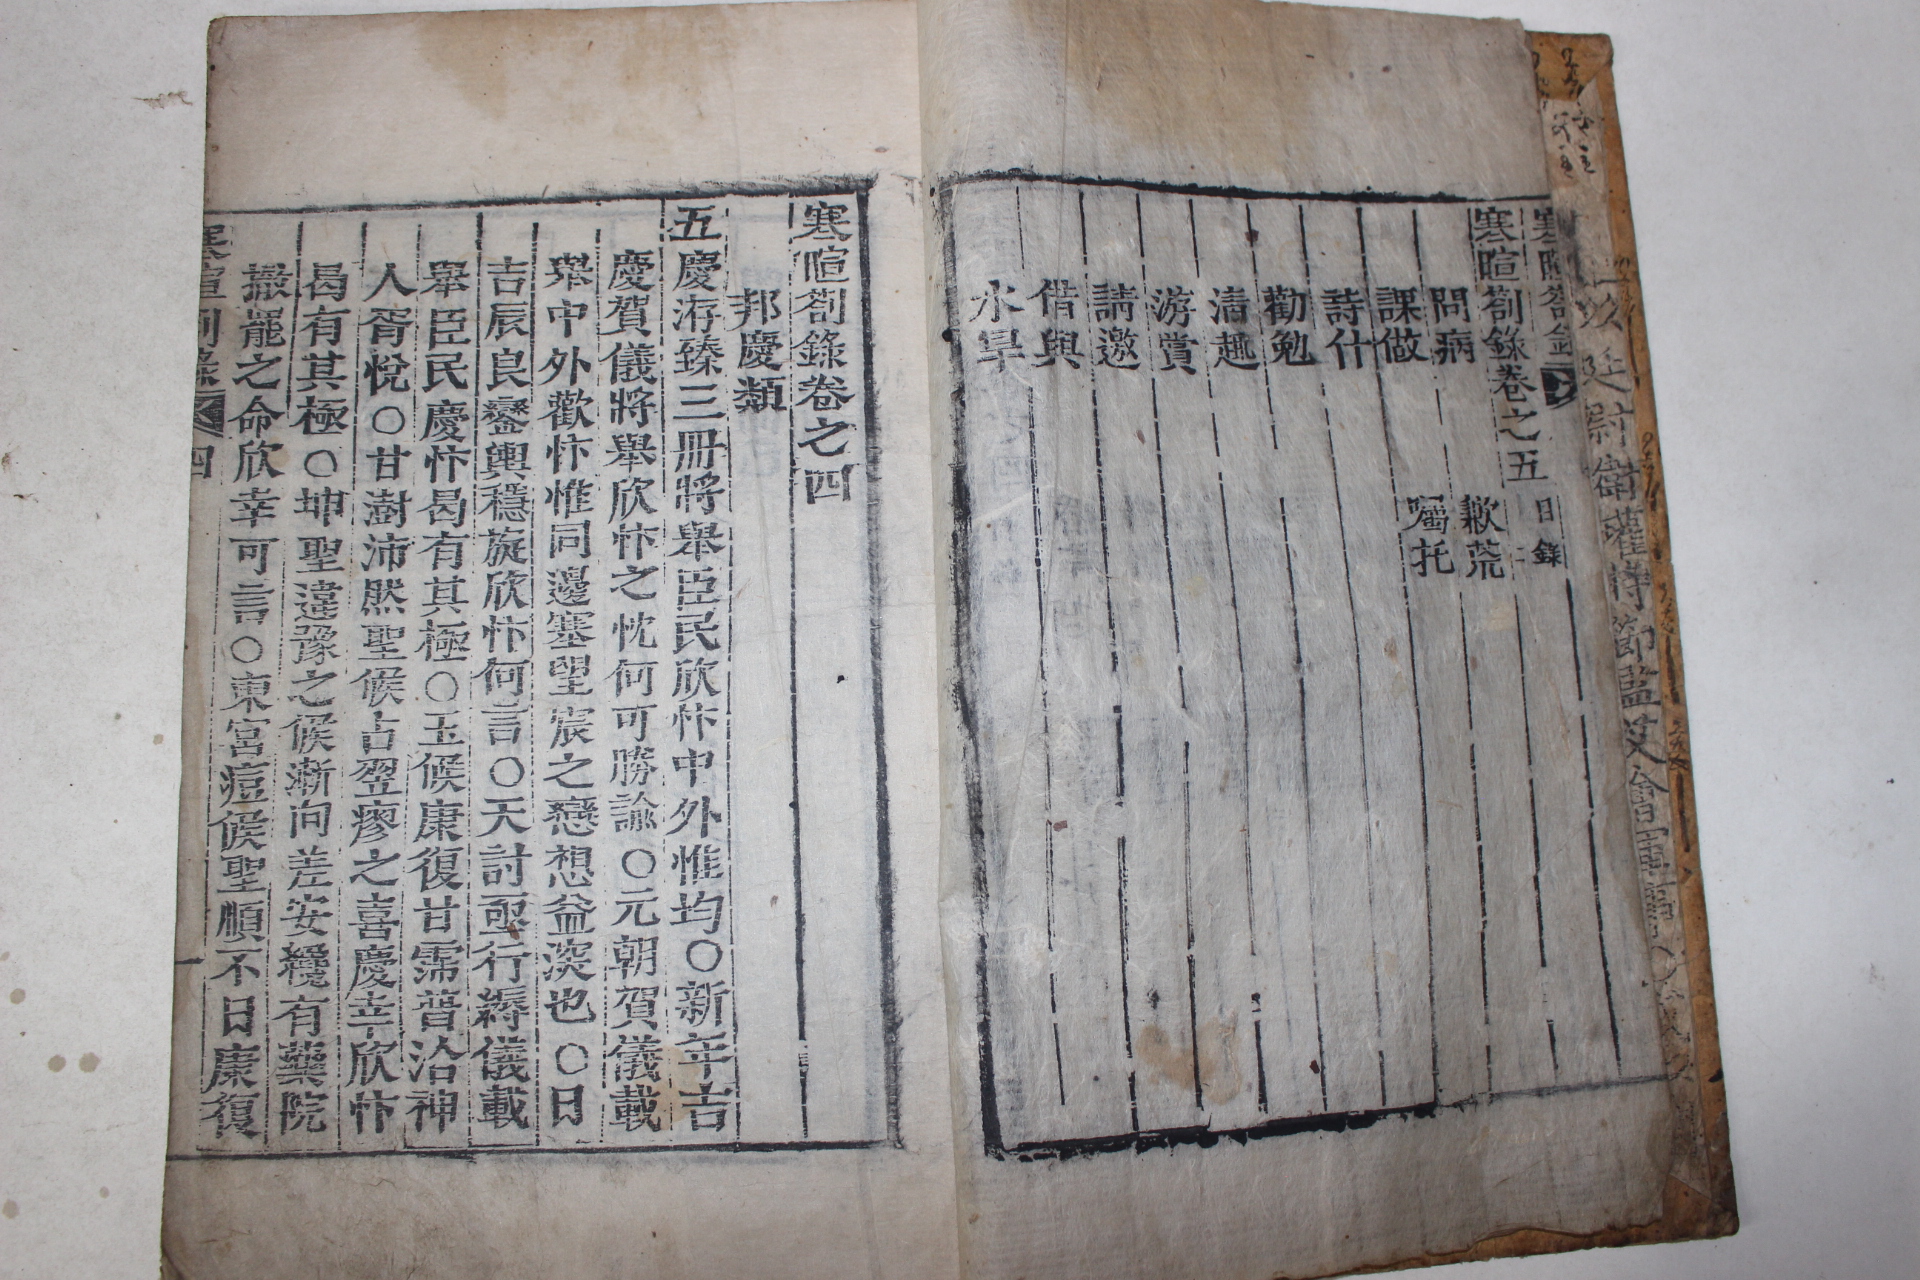 寒暄劄錄卷之五
問病
歉荒
課做
囑托
詩什
勸勉
清趣
游賞
請邀
借與
水旱
目錄 二
寒暄劄錄卷之四
邦慶類
五慶洊臻三冊將舉臣民欣忭中外惟均○新年吉
慶賀儀將舉欣忭之忱何可勝諭○元朝賀儀載
舉中外歡忭惟同邊塞望宸之戀想益深也○日
吉辰良鑾輿穩旋欣忭何言○天討亟行縟儀載
舉臣民慶忭曷有其極○玉候康復甘霈普洽神
人胥悅○甘澍沛然聖候占翌瘳之喜慶幸欣忭
曷有其極○坤聖違豫之候漸向差安纔有藥院
撤罷之命欣幸可言○東宮痘候聖順不日康復
四
一